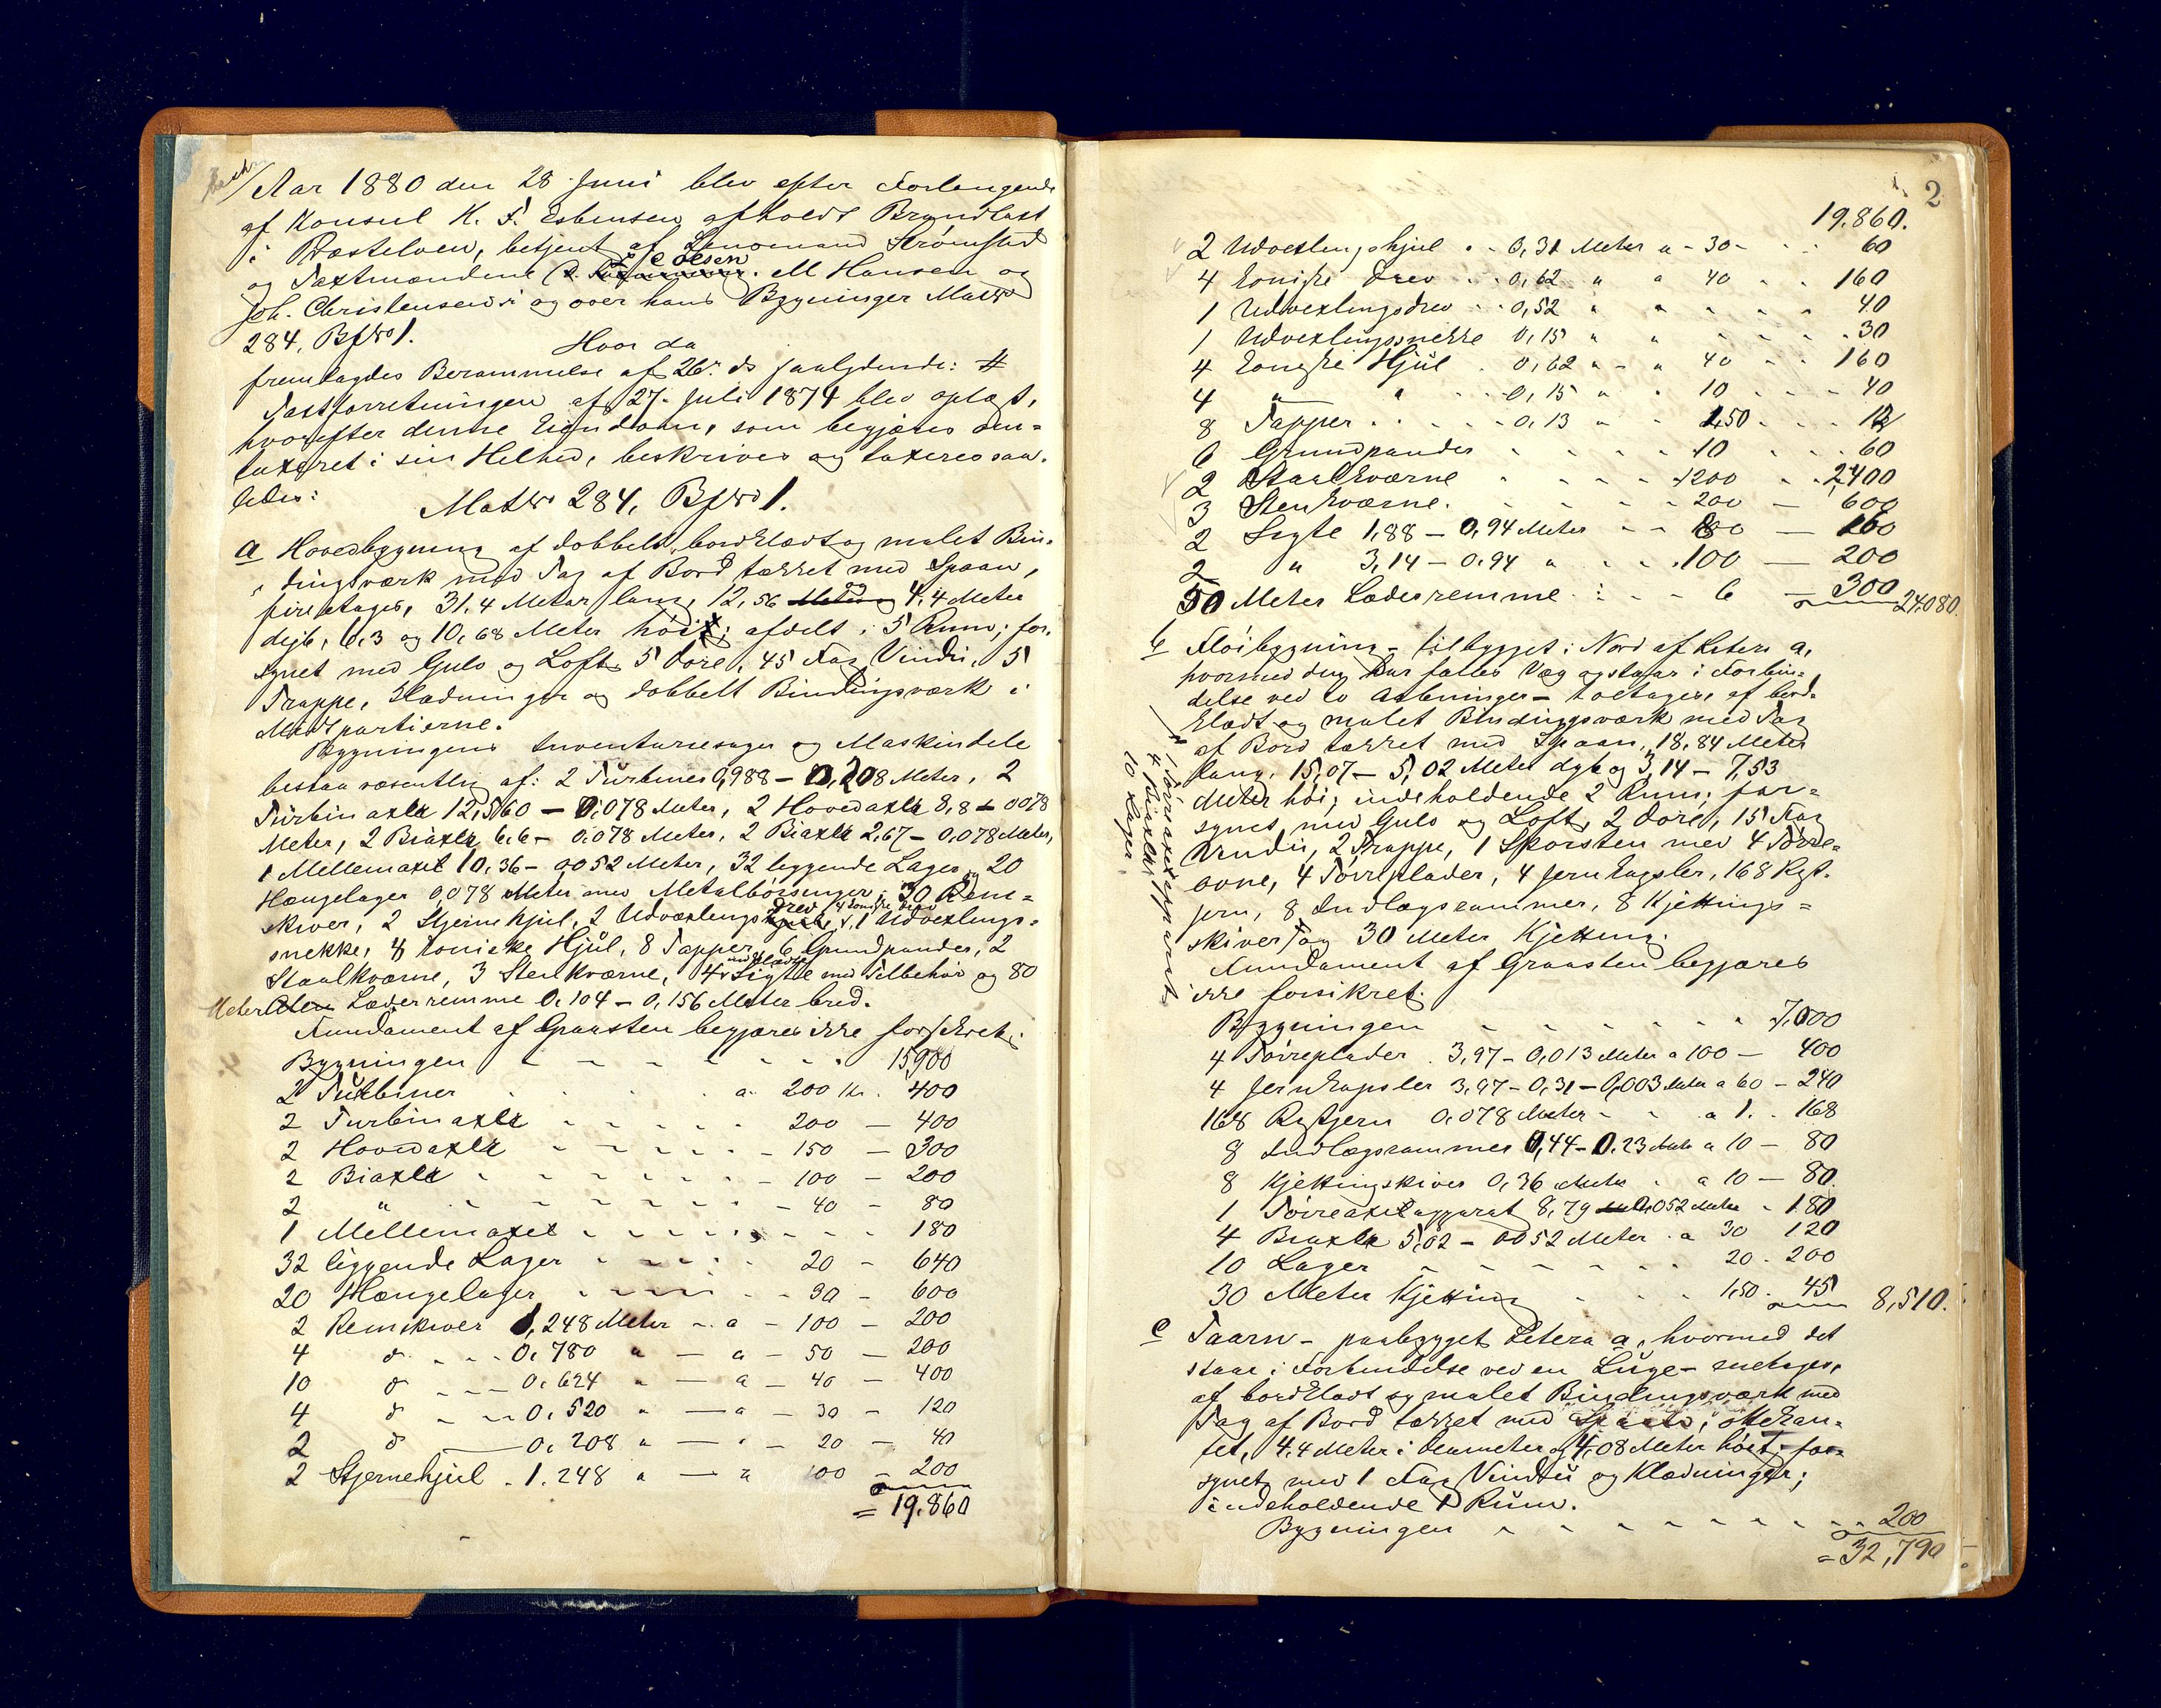 Aar 1880 den 28 Juni blev efter Forlangende
af Konsul H. F. Esbensen afholdt Brandtaxt
i Præstelven, betjent af Lensmand Strømsted
C Olsen
og Taxtmændene M Hansen og
Joh. Christensen i og over hans Bygninger Matr
284, Bf No 1.
Hvor da
fremlagdes Berammelse af 26. ds saalydende: #
Taxtforretningen af 27. Juli 1874 blev oplæst,
hvorefter denne Eiendom, som begjæres om=
taxeret i sin Helhed, beskrives og taxeres saa=
ledes:
Mat No 284, Bf No 1.
a Hovedbygning af dobbelt, bordklædt og malet Bin=
dingsværk med Tag af Bord tækket med Spaan,
fire etages, 31,4 Meter lang, 12,56 og 4,4 Meter
dyb, 6,3 og 10,68 Meter høit; afdelt i 5 Rum; for=
synet med Gulv og Loft, 5 Døre, 45 Fag Vindu, 5
Trappe, Klædninger og dobbelt Bindingsværk i
Midtpartierne.
Bygningens Inventariesager og Maskindele
bestaa væsentlig af: 2 Turbiner 0,988 – 0,208 Meter, 2
Turbinaxle 12,560 – 0,078 Meter, 2 Hovedaxle 8,8 – 0078
Meter, 2 Biaxle 6.6 – 0.078 Meter, 2 Biaxle 2,67 – 0,078 Meter,
1 Mellemaxel 10,36 – 0052 Meter, 32 liggende Lager, 20
Hængelager 0,078 Meter med Metalbøsninger, 30 Rem=
drev, 4 koniske Drev
skiver, 2 Stjerne hjul, 2 Udvexlings 1 Udvexlings=
snekke, 4 koniske Hjul, 8 Tapper, 6 Grundpander, 2
Staalkværne, 3 Stenkværne, 4 Sigte med Tilbehør og 80
Meter Læderremme 0,104 – 0,156 Meter bred.
Fundament af Graasten begjæres ikke forsikret.
Bygningen 15,900
2 Turbiner a 200 Kr. 400
2 Turbinaxle 200 – 400
2 Hovedaxle 150 – 300
2 Biaxle 100 – 200
2 " 40 – 80
1 Mellemaxel 180
32 liggende Lager 20 – 640
20 Hængelager 30 – 600
2 Remskiver 1,248 Meter a 100 – 200
4 d 0,780 " a 50 – 200
10 d 0,624 " a 40 – 400
4 d 0,520 " a 30 – 120
2 d 0,208 " 20 – 40
2 Stjernehjul 1.248 " a 100 – 200
= 19.860
2
19.860.
2 Udvexlingshjul 0,31 Meter a 30 60
4 koniske Drev 0,62 " a 40 160
1 Udvexlingsdrev 0,52 " 40
1 Udvexlingssnekke 0,15 " 30
4 koniske Hjul 0,62 " a 40 160
4 " 0,15 " 10 40
8 Tapper 0,13 " 1,50 12
6 Grundpander 10 60
2 Staalkværne 1200 2400
3 Stenkværne 200 – 600
2 Sigte 1,88 – 0,94 Meter 80 – 160
2 " 3,14 – 0.94 " 100 – 200
50 Meter Læderremme 6 – 300 24.080.
b Fløibygning – tilbygget i Nord af Litera a,
hvormed den har fælles Væg og staar i Forbin=
delse ved to Aabninger – toetages, af bord=
klædt og malet Bindingsværk med Tag
af Bord tækket med Spaan, 18,84 Meter
lang, 15,07 – 5,02 Meter dyb og 3,14 – 7,53
Meter høi; indeholdende 2 Rum; for=
synet med Gulv og Loft, 2 Døre, 15 Fag
Vindu, 2 Trappe, 1 Skorsten med 4 Tørre=
ovne, 4 Tørreplader, 4 Jernkapsler, 168 Rgt.
jern, 8 Indlægsrammer, 8 Kjettings=
skiver og 30 Meter Kjetting.
Fundament af Graasten begjæres
ikke forsikret.
1 Tørreaxelapparat
4 Biaxle,
10 Lager.
Bygningen 7,000
4 Tørreplader 3,97 – 0,013 Meter a 100 – 400
4 Jernkapsler 3,97 – 0,31 – 0,003 Meter a 60 – 240
168 Rgtjern 0,078 Meter a 1. 168
8 Indlægsrammer 0,44 – 0.23 Meter a 10 – 80
8 Kjettingskiver 0,36 Meter a 10 – 80.
1 Tørreaxelapparat 8,79 0,052 Meter 180
4 Biaxle 5,02 – 0052 Meter a 30 120
10 Lager 20. 200
30 Meter Kjetting 1,50. 45 8,510.
c Taarn – paabygget Litera a, hvormed det
staar i Forbindelse ved en Luge – enetages,
af bordklædt og malet Bindingsværk med
Tag af Bord tækket med Spaan; ottekan=
tet, 4,4 Meter i Diameter og 4,08 Meter høit; for=
synet med 1 Fag Vindu og Klædninger;
indeholdende 1 Rum.
Bygningen 200
= 32,790